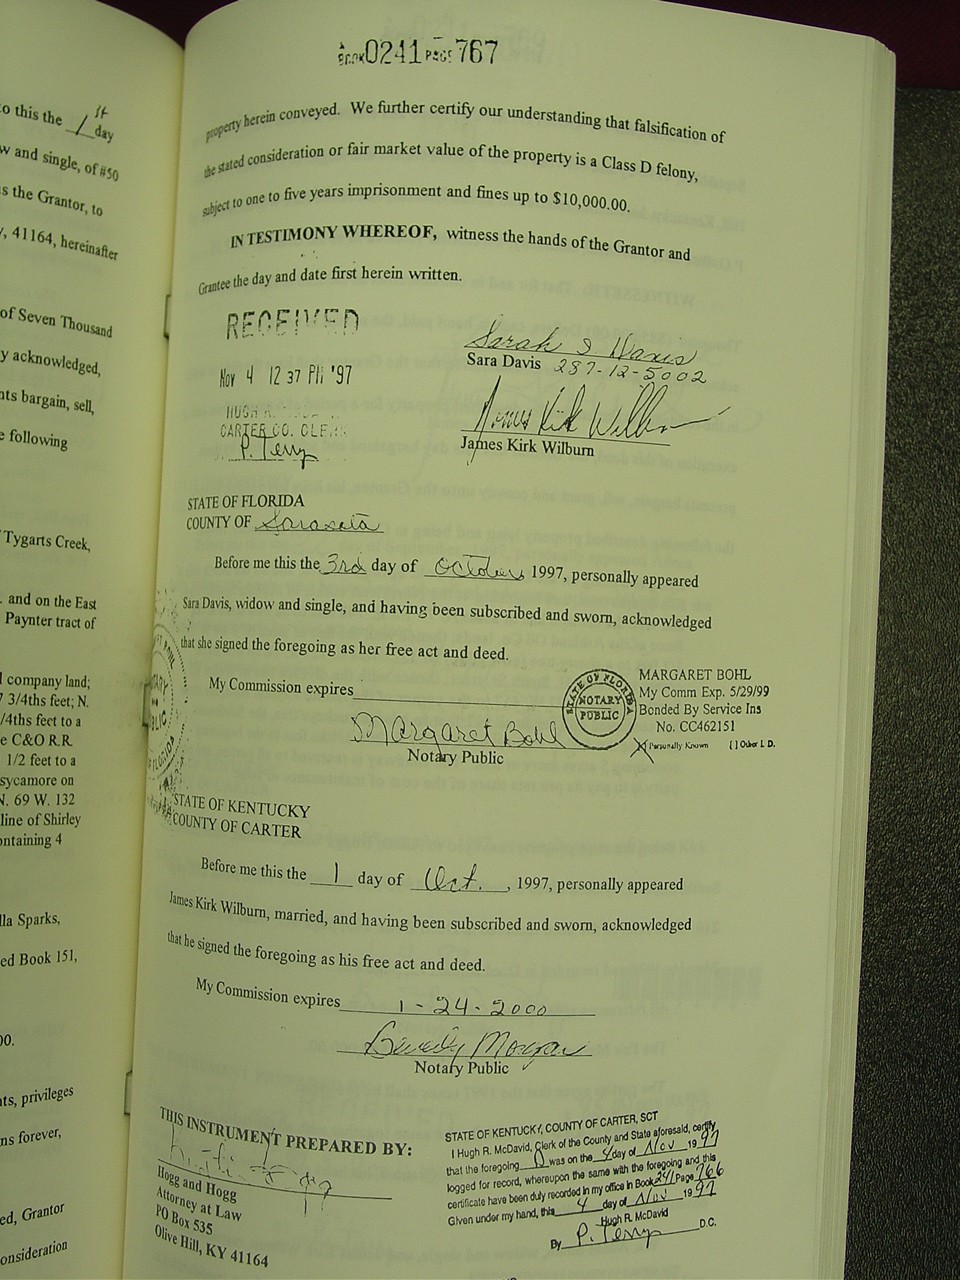 BOOK 0241 PAGE 767
o this the 1st day
w and single, of #50
s the Grantor, to
, 41164, hereinafter
of Seven Thousand
y acknowledged,
nts bargain, sell,
e following
Tygarts Creek,
. and on the East
Paynter tract of
l company land;
7 3/4ths feet; N.
/4ths feet to a
e C&O R.R.
1/2 feet to a
sycamore on
N. 69 W. 132
line of Shirley
ontaining 4
lla Sparks,
ed Book 151,
00.
nts, privileges
ns forever,
ed, Grantor
onsideration
property herein conveyed. We further certify our understanding that falsification of
the stated consideration or fair market value of the property is a Class D felony,
subject to one to five years imprisonment and fines up to $10,000.00.
IN TESTIMONY WHEREOF, witness the hands of the Grantor and
Grantee the day and date first herein written.
RECEIVED
Nov 4 12 37 PM '97
HUGH R.
CARTER CO. CLERK
P. Terry
Sarah I Davis
Sara Davis 287-12-5002
James Kirk Wilburn
James Kirk Wilburn
STATE OF FLORIDA
COUNTY OF Sarasota
Before me this the 3rd day of October, 1997, personally appeared
Sara Davis, widow and single, and having been subscribed and sworn, acknowledged
that she signed the foregoing as her free act and deed.
My Commission expires
Margaret Bohl
Notary Public
STATE OF FLORIDA
NOTARY
PUBLIC
MARGARET BOHL
My Comm Exp. 5/29/99
Bonded By Service Ins
No. CC462151
[X] Personally Known [ ] Other I. D.
STATE OF KENTUCKY
COUNTY OF CARTER
Before me this the 1 day of Oct., 1997, personally appeared
James Kirk Wilburn, married, and having been subscribed and sworn, acknowledged
that he signed the foregoing as his free act and deed.
My Commission expires 1-24-2000
Beverly Morgan
Notary Public
THIS INSTRUMENT PREPARED BY:
Hogg and Hogg
Attorney at Law
PO Box 535
Olive Hill, KY 41164
STATE OF KENTUCKY, COUNTY OF CARTER, SCT
I Hugh R. McDavid, Clerk of the County and State aforesaid, certify
that the foregoing D was on the 4 day of Nov 1997
logged for record, whereupon the same with the foregoing and this
certificate have been duly recorded in my office in Book 241 Page 766
Given under my hand, this 4 day of Nov 1997
Hugh R. McDavid
By P. Terry D.C.